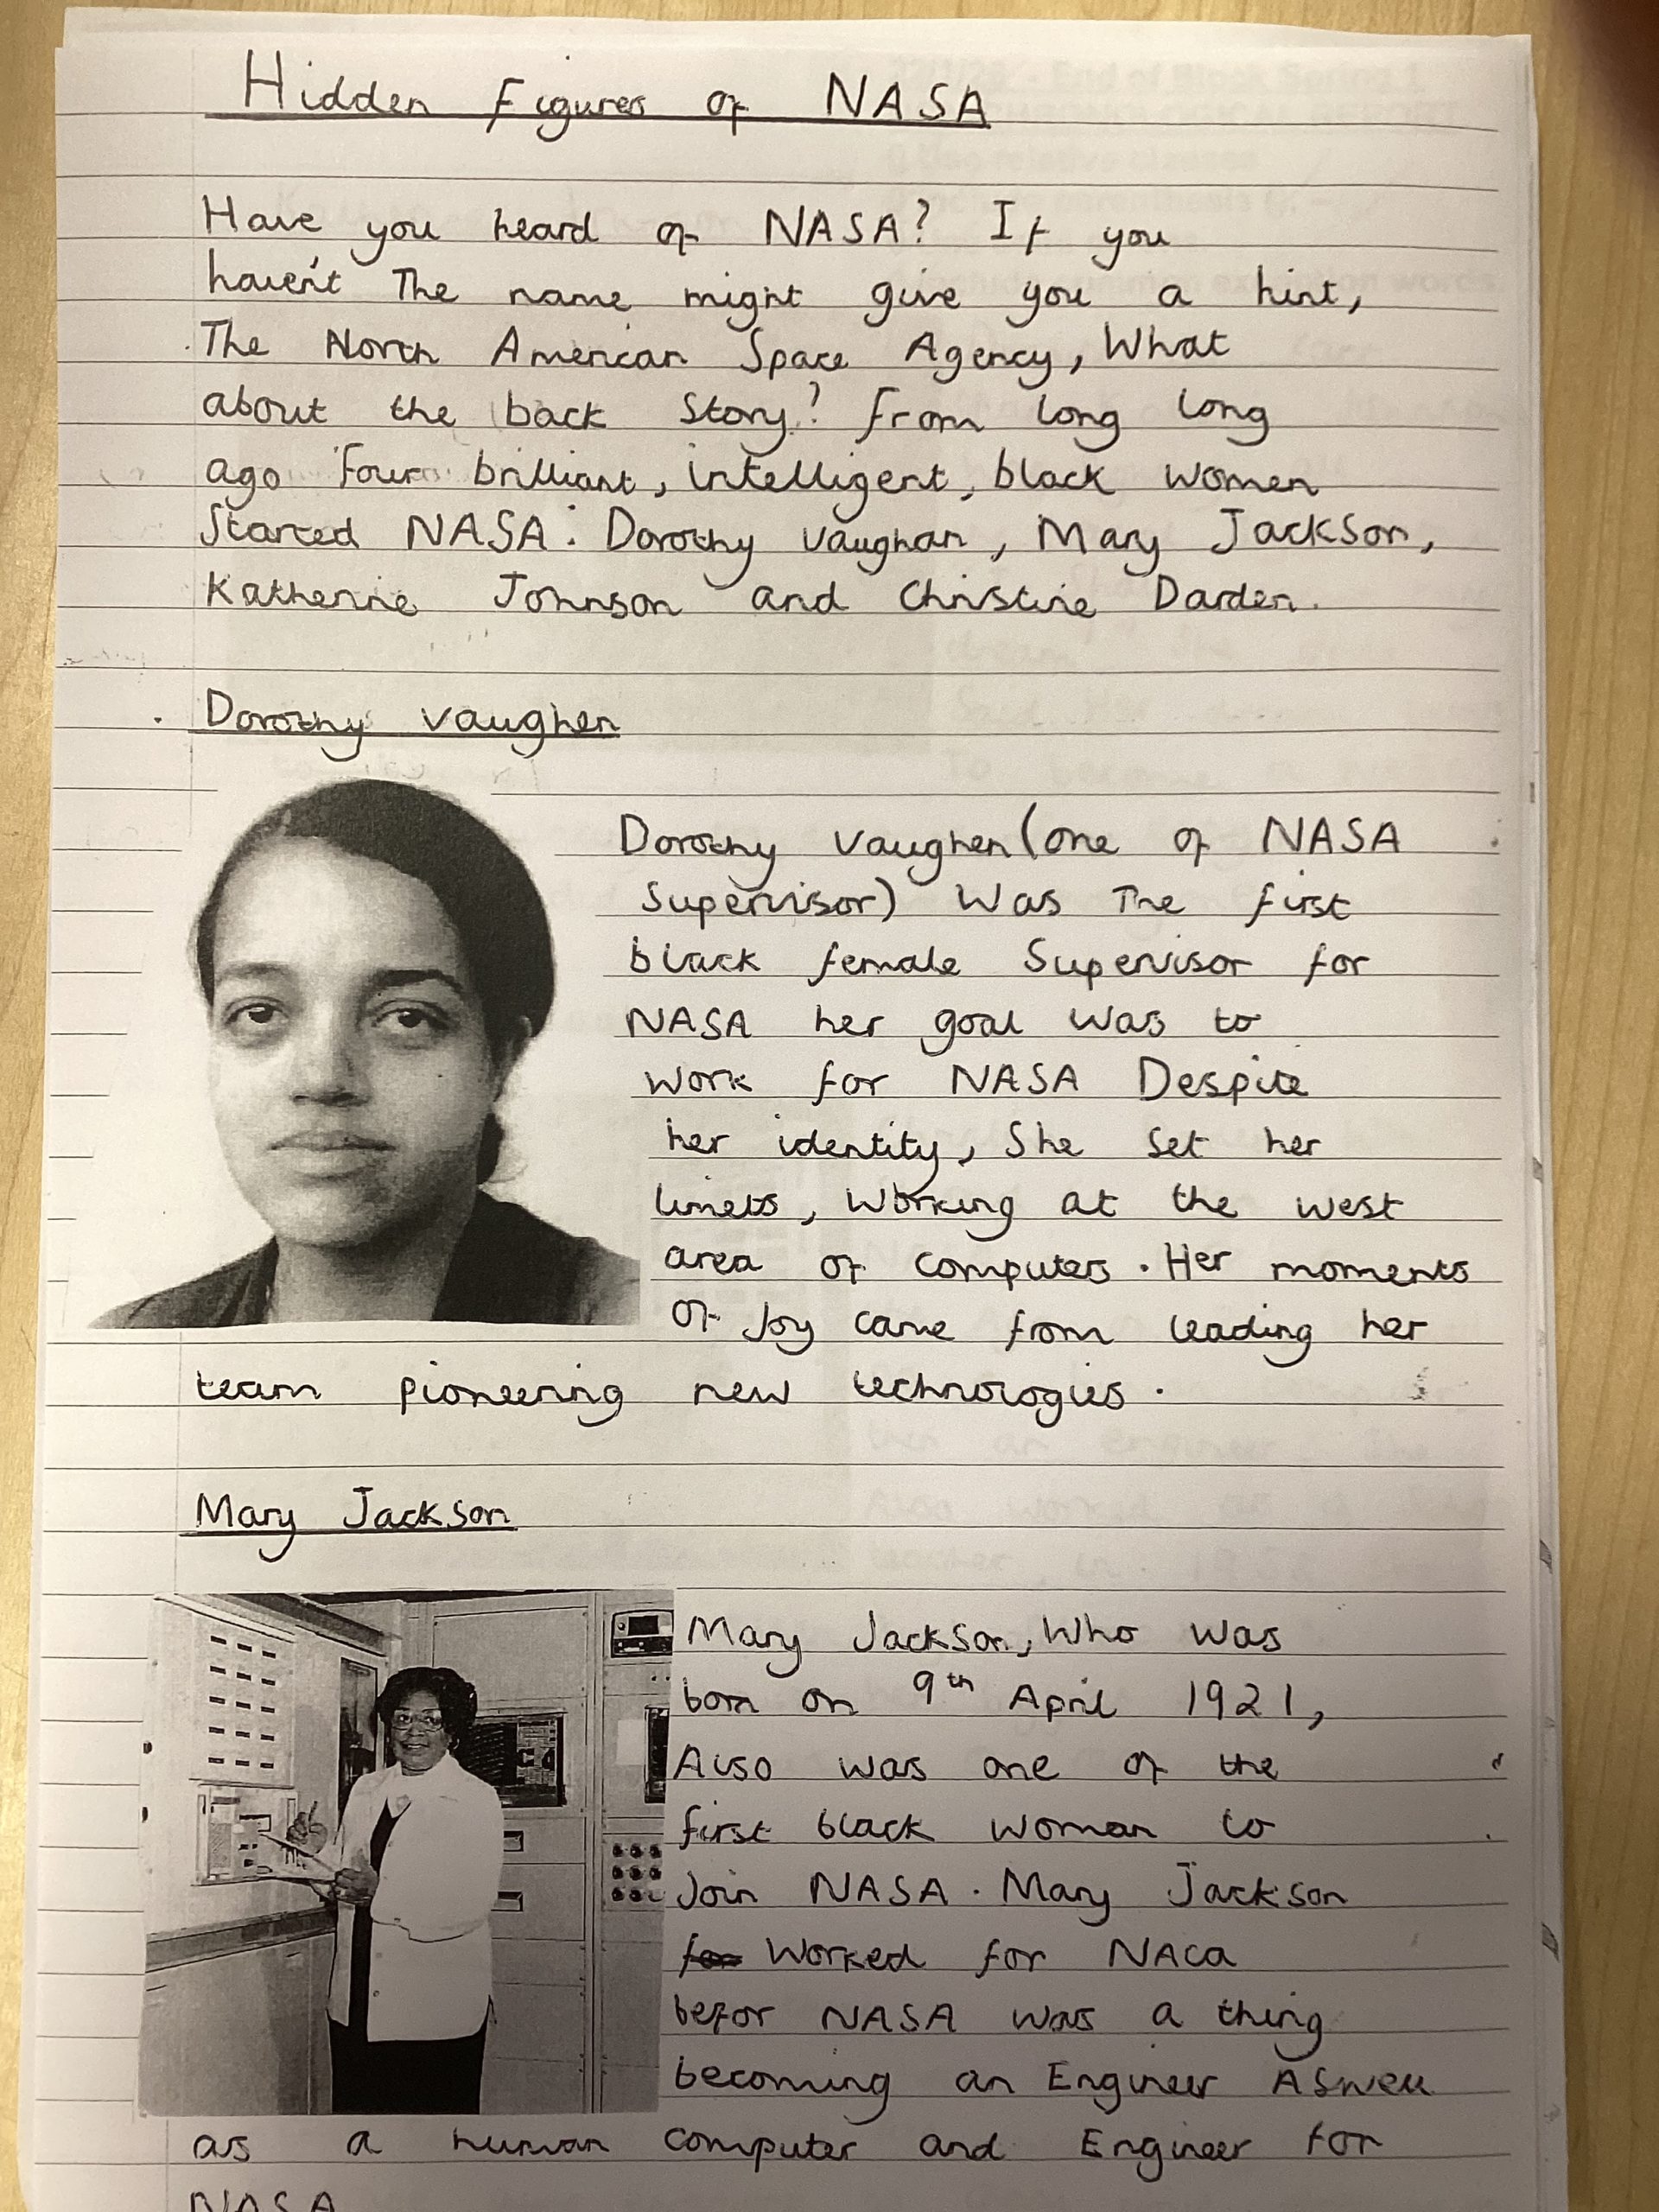 Hidden Figures of NASA
Have you heard of NASA? If you
haven't The name might give you a hint,
The North American Space Agency, What
about the back story? From long long
ago Four brilliant, intelligent, black women
Started NASA: Dorothy Vaughan, Mary Jackson,
Katherine Johnson and Christine Darden.
Dorothy Vaughen
Dorothy Vaughen (one of NASA
Supervisor) Was The first
black female Supervisor for
NASA her goal was to
work for NASA Despite
her identity, She set her
limets, Working at the west
area of computers. Her moments
of Joy came from leading her
team pioneering new technologies.
Mary Jackson
Mary Jackson, Who was
born on 9th April 1921,
Also was one of the
first black woman to
Join NASA. Mary Jackson
Worked for NACa
befor NASA was a thing
becoming an Engineer Aswell
as a human computer and Engineer for
NASA